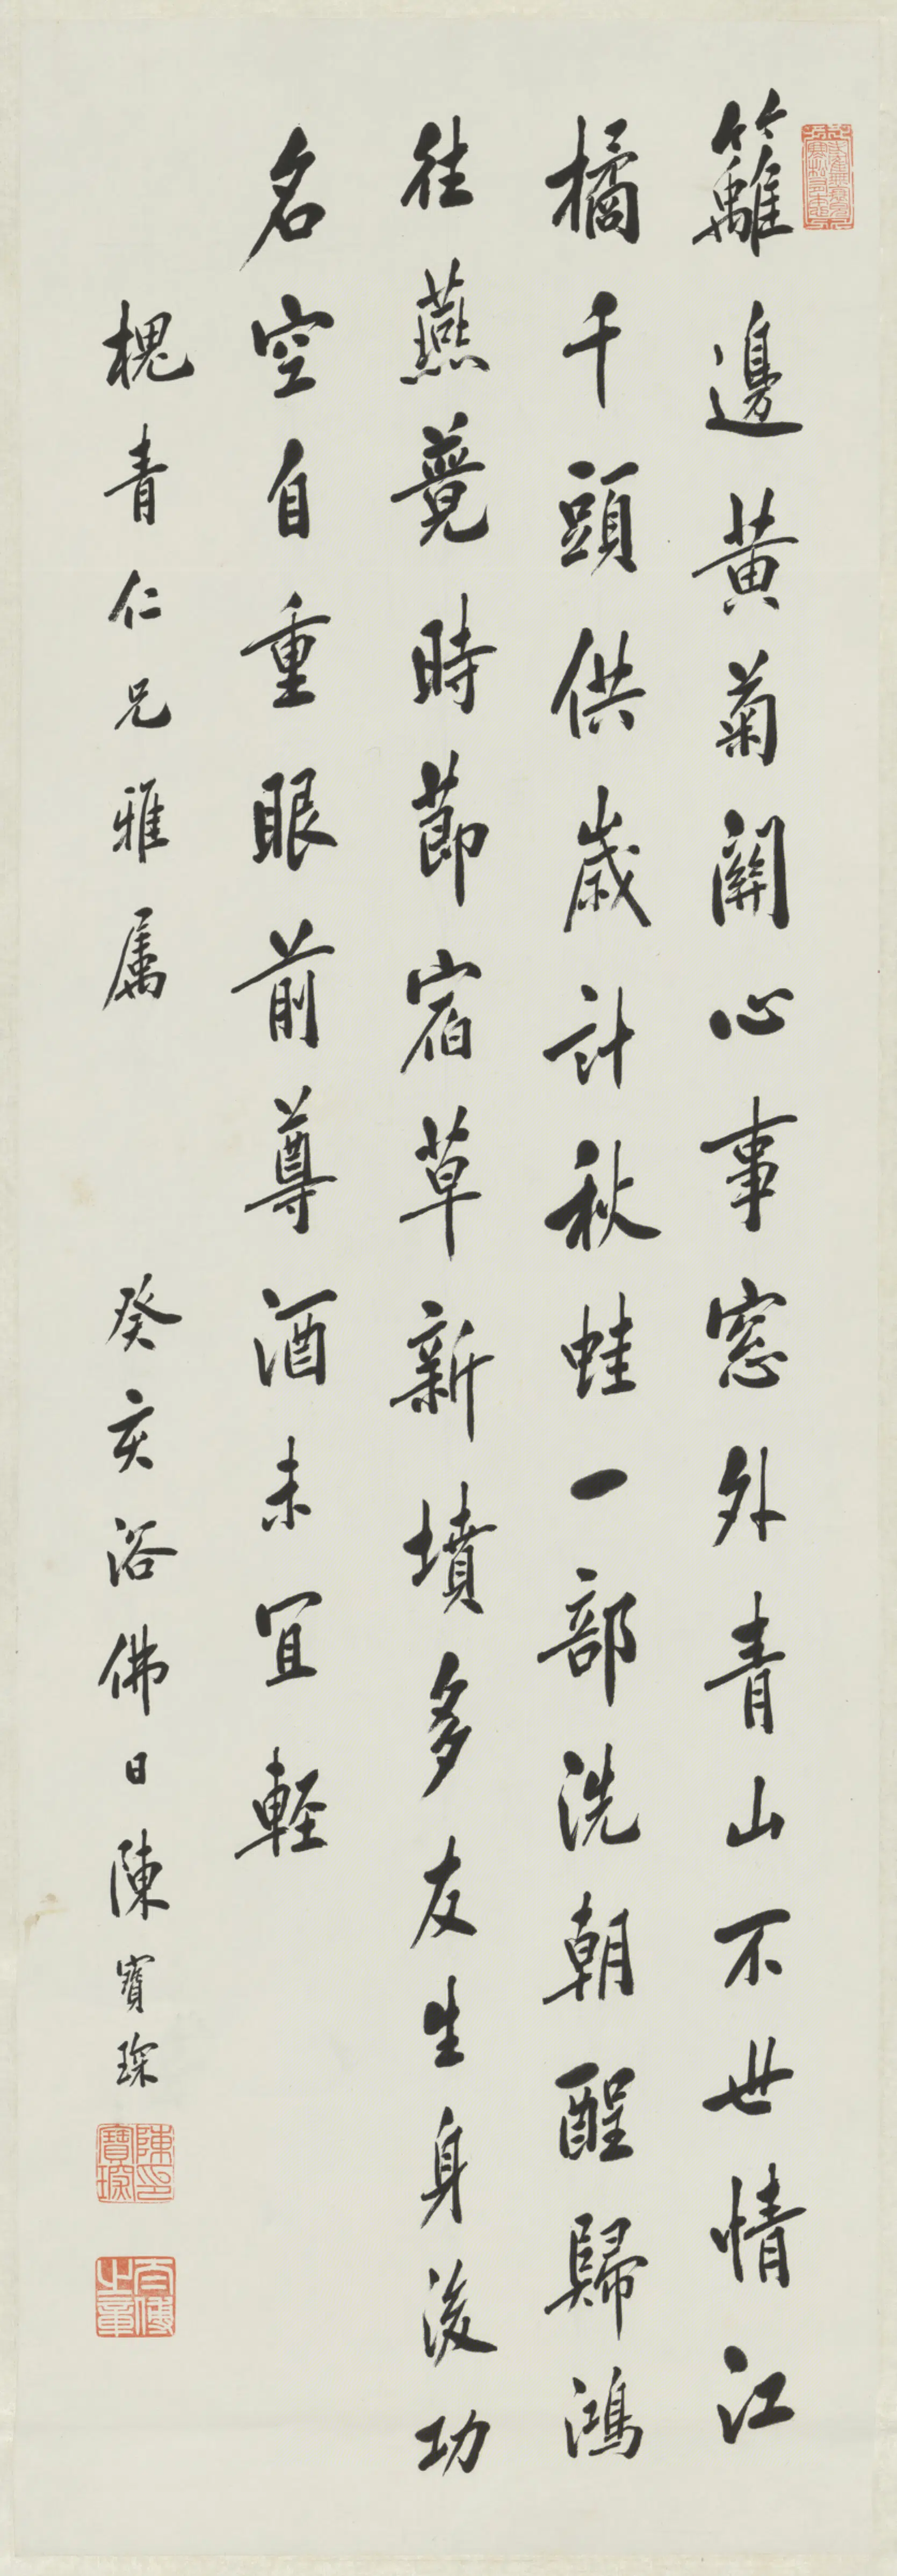 籬邊黃菊關心事窓外青山不世情江
橘千頭供歲計秋蛙一部洗朝酲歸鴻
往燕競時節宿草新墳多友生身後功
名空自重眼前尊酒未宜輕
槐青仁兄雅屬
癸亥浴佛日陳寶琛
陳寶琛印
太傅之章